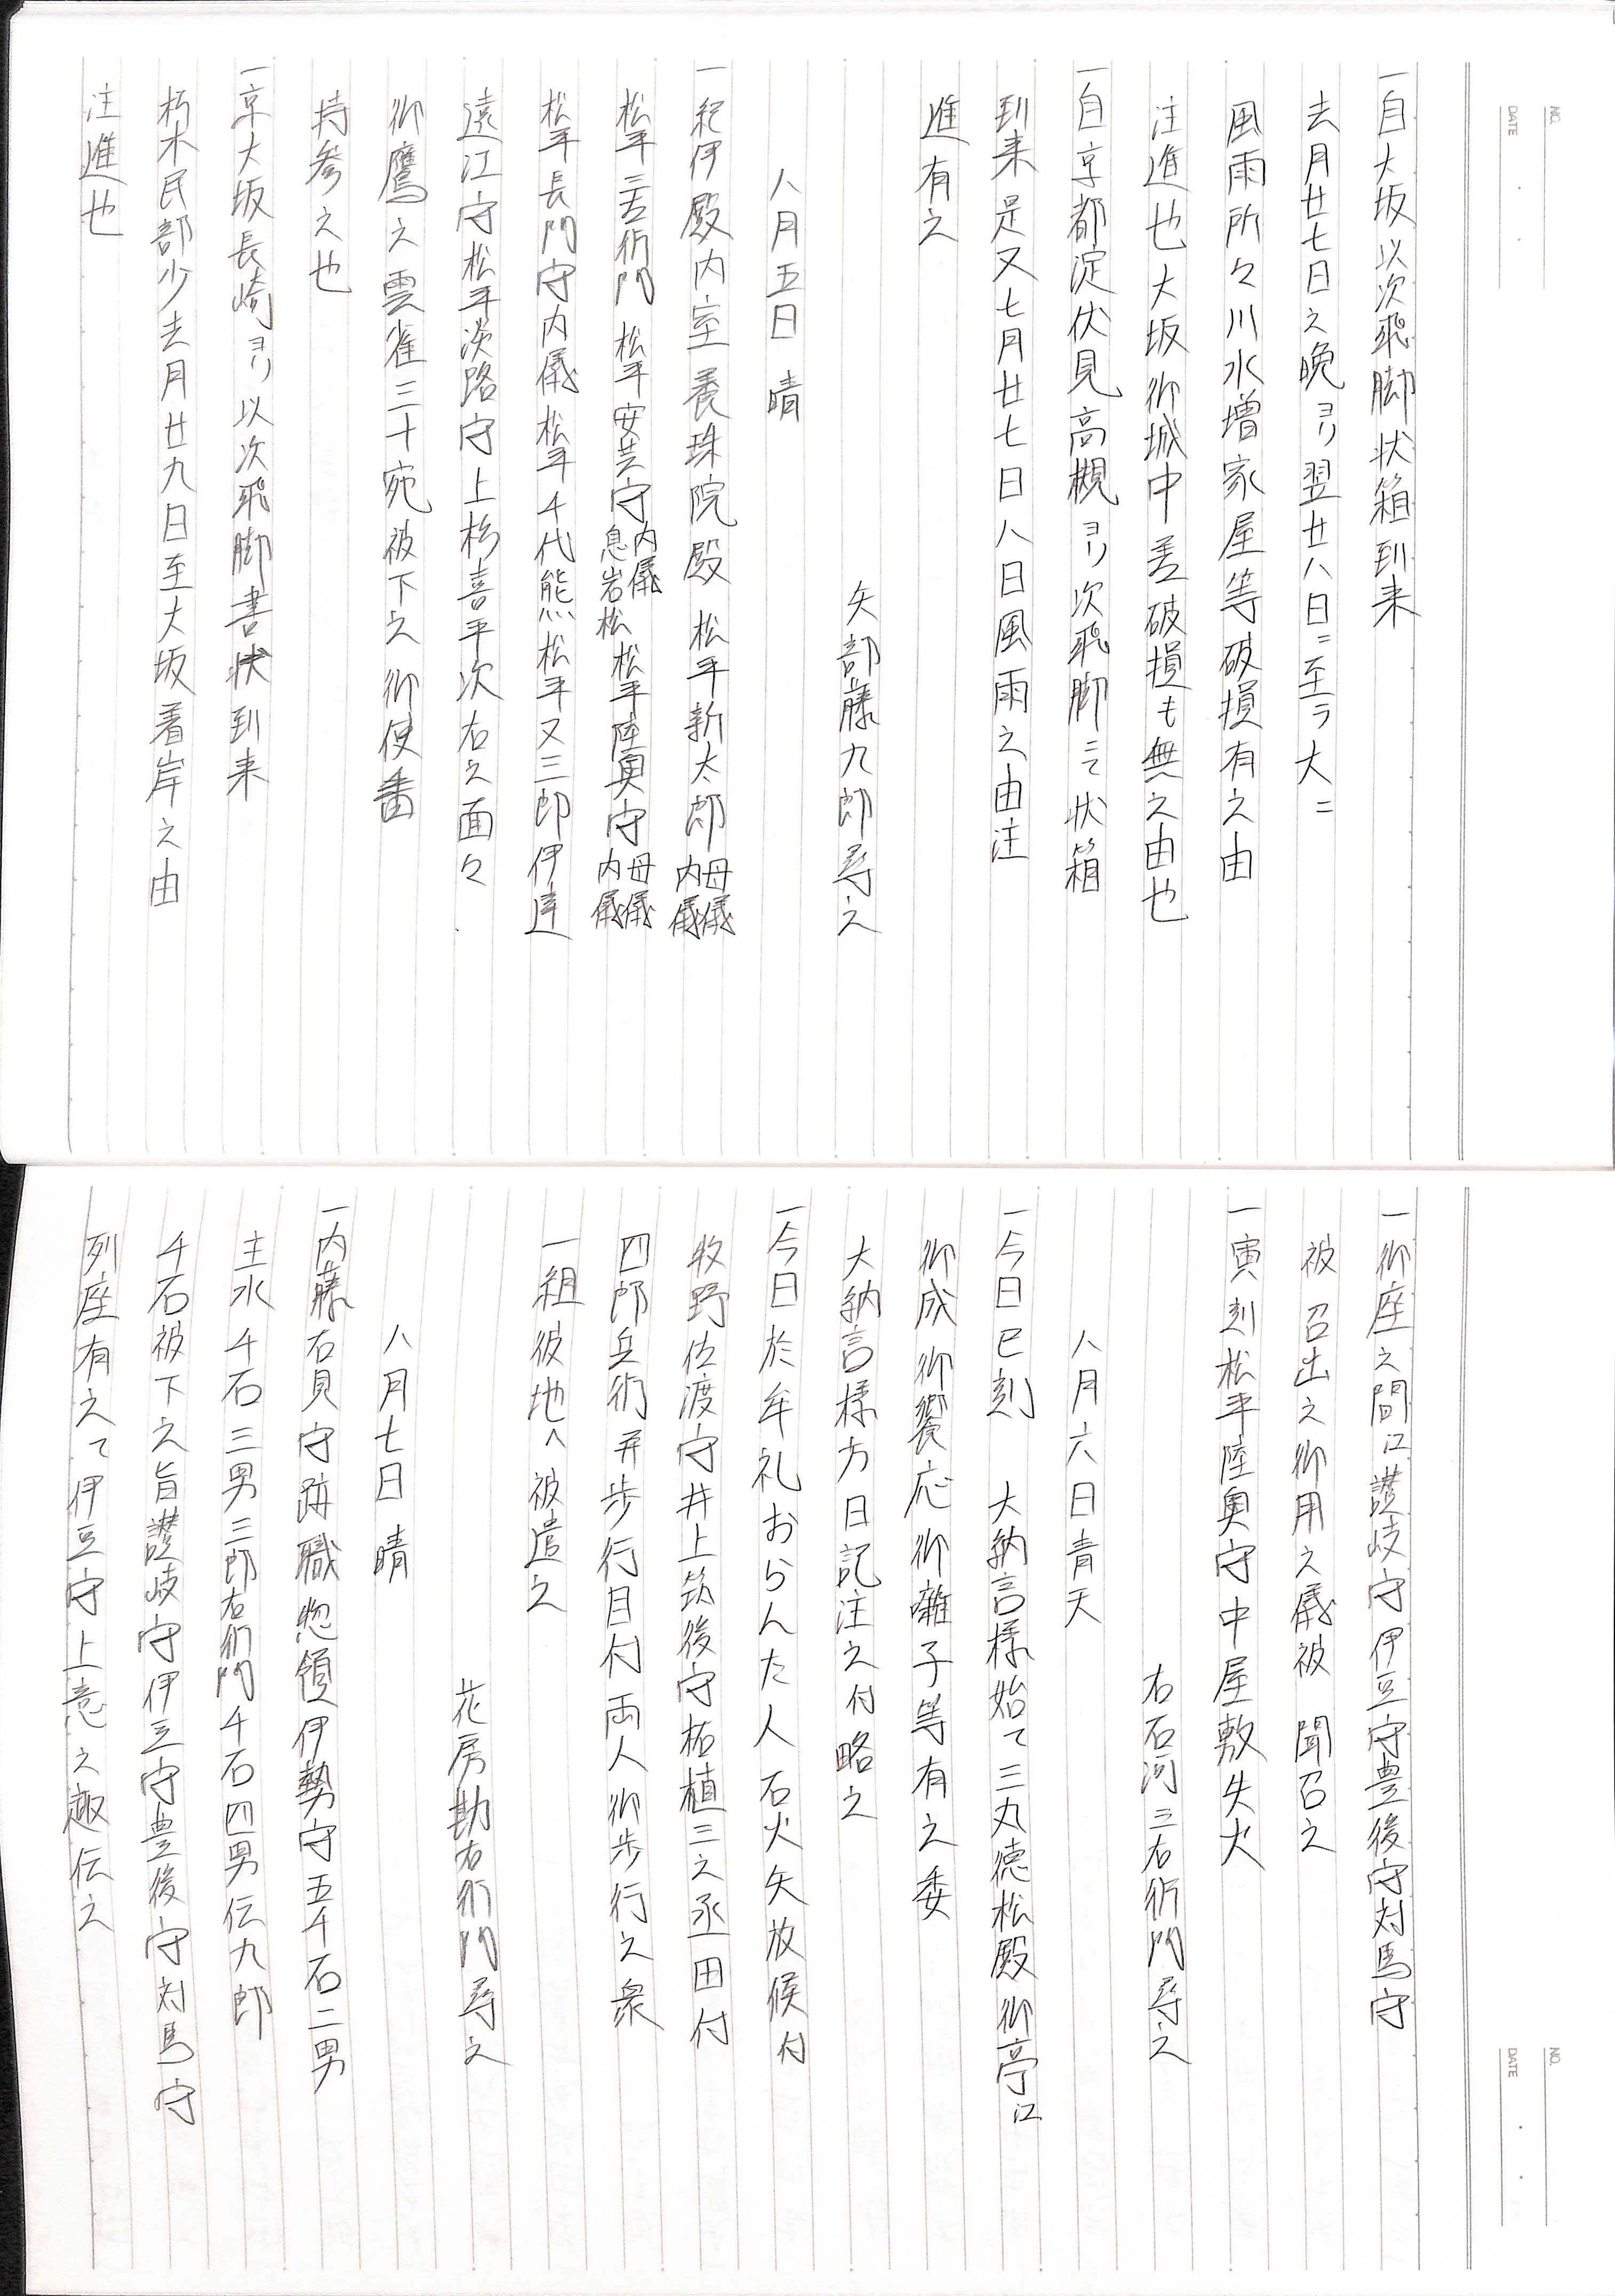 NO.
DATE
一自大坂以次飛脚状箱到来
去月廿七日之晩ヨリ翌廿八日ニ至ラ大ニ
風雨所々川水増家屋等破損有之由
注進也大坂御城中差破損も無之由也
一自京都淀伏見高槻ヨリ次飛脚ニテ状箱
到来是又七月廿七日八日風雨之由注
進有之
矢部藤九郎尋之
八月五日 晴
一紀伊殿内室養珠院殿 松平新太郎母儀内儀
松平三左衛門 松平安芸守内儀息岩松 松平陸奥守母儀内儀
松平長門守内儀 松平千代熊 松平又三郎 伊達
遠江守松平淡路守上杉喜平次右之面々
御鷹之雲雀三十宛被下之御使番
持参之也
一京大坂長崎ヨリ以次飛脚書状到来
朽木民部少去月廿九日至大坂着岸之由
注進也
NO.
DATE
一御座之間江讃岐守伊豆守豊後守対馬守
被 召出之御用之儀被 聞召之
一寅刻松平陸奥守中屋敷失火
右石河三右衛門尋之
八月六日青天
一今日巳刻 大納言様始て三丸徳松殿御亭江
御成御饗応御囃子等有之委
大納言様方日記注之付略之
一今日於牟礼おらんた人石火矢放候付
牧野佐渡守井上筑後守柘植三之丞田付
四郎兵衛并歩行目付両人御歩行之衆
一組彼地へ被遣之
花房勘右衛門尋之
八月七日 晴
一内藤石見守跡職惣領伊勢守五千石二男
主水千石三男三郎右衛門千石四男伝九郎
千石被下之旨讃岐守伊豆守豊後守対馬守
列座有之て伊豆守上意之趣伝之